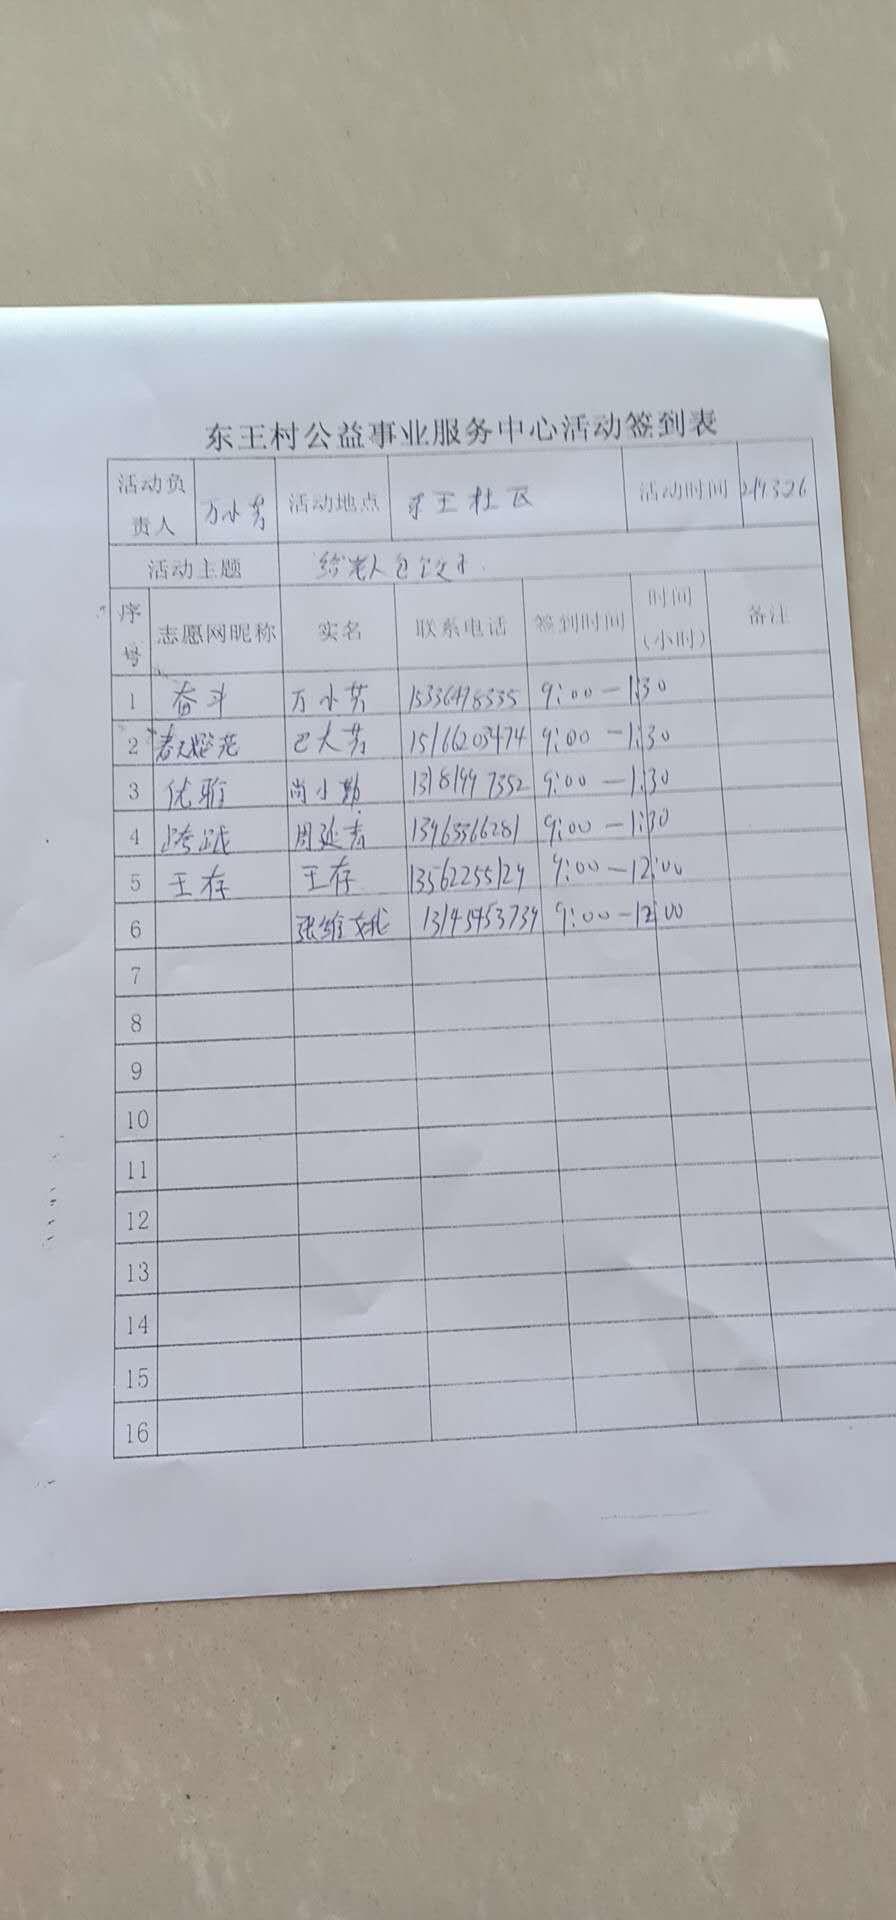 东王村公益事业服务中心活动签到表
活动负责人 万小芳 活动地点 东王社区 活动时间
活动主题 给老人包饺子
序号 志愿网昵称 实名 联系电话 签到时间 时间(小时) 备注
1 奋斗 万小芳 15336498335 9:00-1:30
2 巴大芳 15166203474 9:00-1:30
3 优雅 尚小勤 13181997352 9:00-1:30
4 跨越 周延青 13465566281 9:00-1:30
5 王存 王存 13562255124 9:00-12:00
6 张维 9:00-12:00
7
8
9
10
11
12
13
14
15
16